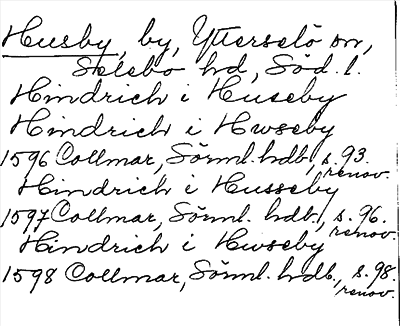 Husby, by, Ytterselö sn,
Selebo hd, Söd. l.
Hindrich i Huseby
Hindrich i Hwseby
1596 Collmar, Sörml. hdb., s. 93.
renov.
Hindrich i Husseby
1597 Collmar, Sörml. hdb., s. 96.
renov.
Hindrich i Hwseby
1598 Collmar, Sörml. hdb., s. 98.
renov.